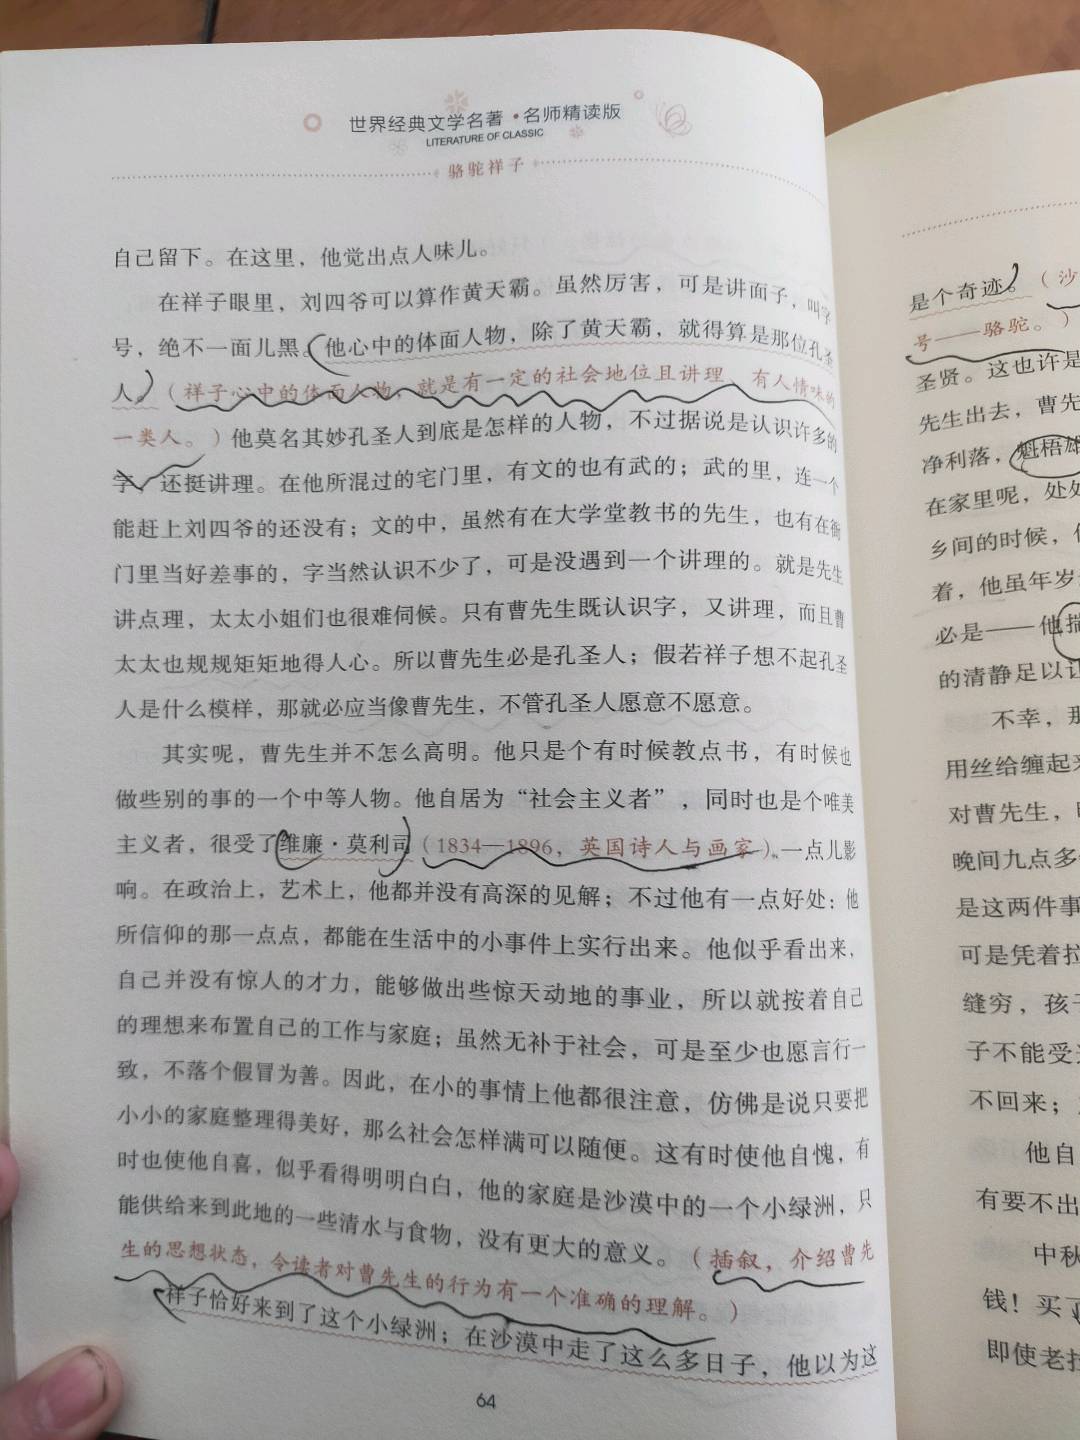 世界经典文学名著·名师精读版
LITERATURE OF CLASSIC
骆驼祥子
自己留下。在这里，他觉出点人味儿。
在祥子眼里，刘四爷可以算作黄天霸。虽然厉害，可是讲面子，叫字
号，绝不一面儿黑。他心中的体面人物，除了黄天霸，就得算是那位孔圣
人。（祥子心中的体面人物，就是有一定的社会地位且讲理、有人情味的
一类人。）他莫名其妙孔圣人到底是怎样的人物，不过据说是认识许多的
字，还挺讲理。在他所混过的宅门里，有文的也有武的；武的里，连一个
能赶上刘四爷的还没有；文的中，虽然有在大学堂教书的先生，也有在衙
门里当好差事的，字当然认识不少了，可是没遇到一个讲理的。就是先生
讲点理，太太小姐们也很难伺候。只有曹先生既认识字，又讲理，而且曹
太太也规规矩矩地得人心。所以曹先生必是孔圣人；假若祥子想不起孔圣
人是什么模样，那就必应当像曹先生，不管孔圣人愿意不愿意。
其实呢，曹先生并不怎么高明。他只是个有时候教点书，有时候也
做些别的事的一个中等人物。他自居为“社会主义者”，同时也是个唯美
主义者，很受了维廉·莫利司（1834—1896，英国诗人与画家）一点儿影
响。在政治上，艺术上，他都并没有高深的见解；不过他有一点好处：他
所信仰的那一点点，都能在生活中的小事件上实行出来。他似乎看出来，
自己并没有惊人的才力，能够做出些惊天动地的事业，所以就按着自己
的理想来布置自己的工作与家庭；虽然无补于社会，可是至少也愿言行一
致，不落个假冒为善。因此，在小的事情上他都很注意，仿佛是说只要把
小小的家庭整理得美好，那么社会怎样满可以随便。这有时使他自愧，有
时也使他自喜，似乎看得明明白白，他的家庭是沙漠中的一个小绿洲，只
能供给来到此地的一些清水与食物，没有更大的意义。（插叙，介绍曹先
生的思想状态，令读者对曹先生的行为有一个准确的理解。）
祥子恰好来到了这个小绿洲；在沙漠中走了这么多日子，他以为这
64
是个奇迹。（沙
号——骆驼。）
圣贤。这也许是
先生出去，曹先
净利落，魁梧雄
在家里呢，处处
乡间的时候，
着，他虽年岁
必是——他揣
的清静足以让
不幸，那
用丝给缠起来
对曹先生，
晚间九点多
是这两件事
可是凭着拉
缝穷，孩子
子不能受
不回来；
他自
有要不出
中秋
钱！买
即使老拉